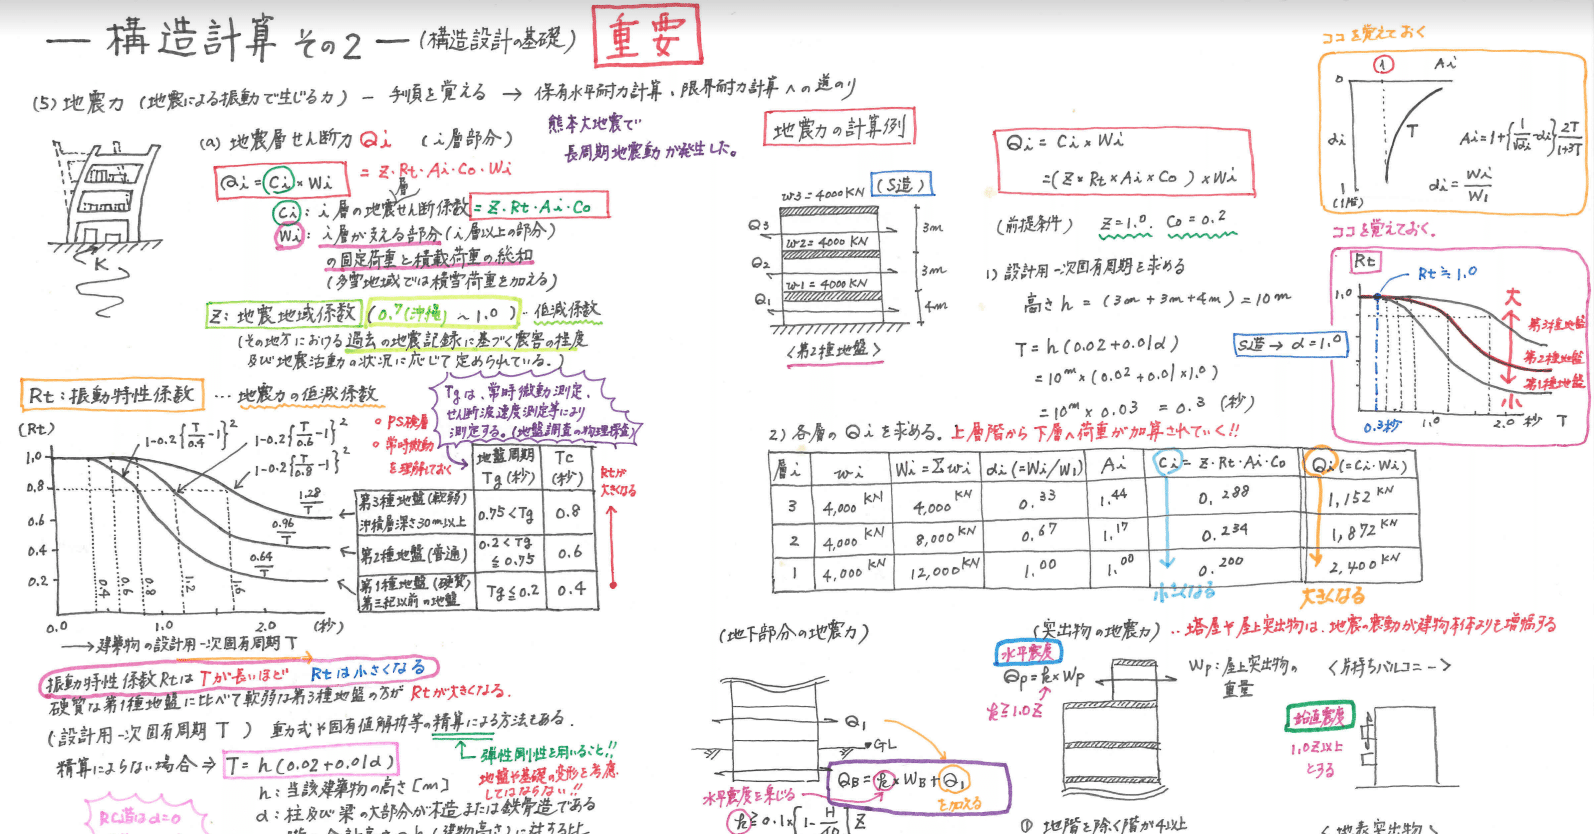 ― 構造計算 その2 ―(構造設計の基礎) 重要
(5) 地震力 (地震による振動で生じる力) ― 手順を覚える → 保有水平耐力計算、限界耐力計算への道のり
(a) 地震層せん断力 Qi (i層部分)
Qi = Ci × Wi = Z・Rt・Ai・Co・Wi
Ci : i層の地震せん断係数 = Z・Rt・Ai・Co
層
Wi : i層が支える部分(i層以上の部分)
の固定荷重と積載荷重の総和
(多雪地域では積雪荷重を加える)
K
熊本大地震で
長周期地震動が発生した。
Z : 地震地域係数 (0.7(沖縄) ~ 1.0) ‥低減係数
(その地方における過去の地震記録に基づく震害の程度
及び地震活動の状況に応じて定められている。)
Rt : 振動特性係数 … 地震力の低減係数
Tgは、常時微動測定、
せん断波速度測定等により
測定する。(地盤調査の物理探査)
○ PS検層
○ 常時微動
を理解しておく
(Rt)
1.0
0.8
0.6
0.4
0.2
1-0.2{T/0.4-1}²
1-0.2{T/0.6-1}²
1-0.2{T/0.8-1}²
1.28/T
0.96/T
0.64/T
0.4 0.6 0.8 1.2 1.6
0.0 1.0 2.0 (秒)
→ 建築物の設計用一次固有周期 T
地盤周期 Tg(秒) Tc (秒)
第3種地盤(軟弱) 沖積層深さ30m以上 0.75<Tg 0.8
第2種地盤(普通) 0.2<Tg ≦0.75 0.6
第1種地盤(硬質) 第三紀以前の地盤 Tg≦0.2 0.4
Rtが
大きくなる
振動特性係数RtはTが長いほど Rtは小さくなる
硬質な第1種地盤に比べて軟弱な第3種地盤の方が Rtが大きくなる.
(設計用一次固有周期 T ) 重力式や固有値解析等の精算による方法もある.
弾性剛性を用いること!!
地盤や基礎の変形を考慮
してはならない!!
精算によらない場合 ⇒ T = h(0.02+0.01α)
h : 当該建築物の高さ[m]
α : 柱及び梁の大部分が木造または鉄骨造である
RC造はα=0
地震力の計算例
(S造)
w3=4000KN
w2=4000KN
w1=4000KN
Q3
Q2
Q1
3m
3m
4m
<第2種地盤>
Qi = Ci × Wi
=(Z × Rt × Ai × Co ) × Wi
(前提条件) Z=1.0. Co=0.2
1) 設計用一次固有周期を求める
高さ h = (3m + 3m + 4m) = 10m
T = h(0.02+0.01α)
S造→ α=1.0
=10m×(0.02+0.01×1.0)
=10m×0.03 = 0.3 (秒)
2) 各層のQiを求める。上層階から下層へ荷重が加算されていく!!
層i wi Wi=Σwi αi(=Wi/W1) Ai Ci=Z・Rt・Ai・Co Qi(=Ci・Wi)
3 4,000KN 4,000KN 0.33 1.44 0.288 1,152KN
2 4,000KN 8,000KN 0.67 1.17 0.234 1,872KN
1 4,000KN 12,000KN 1.00 1.00 0.200 2,400KN
小さくなる
大きくなる
ココを覚えておく
0 1 Ai
αi
T
1
(1階)
Ai=1+{1/√αi-αi}2T/1+3T
αi=Wi/W1
ココを覚えておく。
Rt
Rt≒1.0
1.0
大
第3種地盤
第2種地盤
第1種地盤
小
0.3秒 1.0 2.0 秒 T
(地下部分の地震力)
Q1
GL
QB = k × WB + Q1
水平震度を乗じる
を加える
k≧0.1×{1-H/40}Z
(突出物の地震力) ‥塔屋や屋上突出物は、地震の震動が建物本体よりも増幅する
水平震度
Qp = k × Wp
k≧1.0Z
Wp : 屋上突出物の
重量
<片持ちバルコニー>
鉛直震度
1.0Z以上
とする
① 地階を除く階が4以上
<地表突出物>